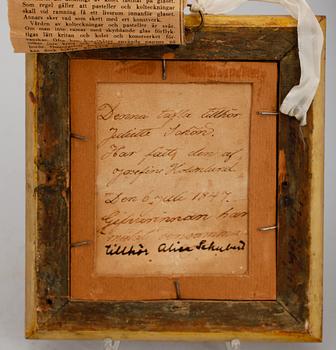 Som regel gäller att pasteller och kolteckningar
skall vid ramning få ett livsrum innanför glaset.
Annars sker vad som skett med ert konstverk.
Värden av kolteckningar och pasteller är svår
Om man inte vässar med skyddande glas förflyk-
tigas lätt kritan och kolet och konstverket för-
Denna tafla tillhör
Juliette Schön.
Har fått den af
Josefine Holmlund
Den 6 Julii 1847.
Gifvarinnan har
tillhör Alice Schubert